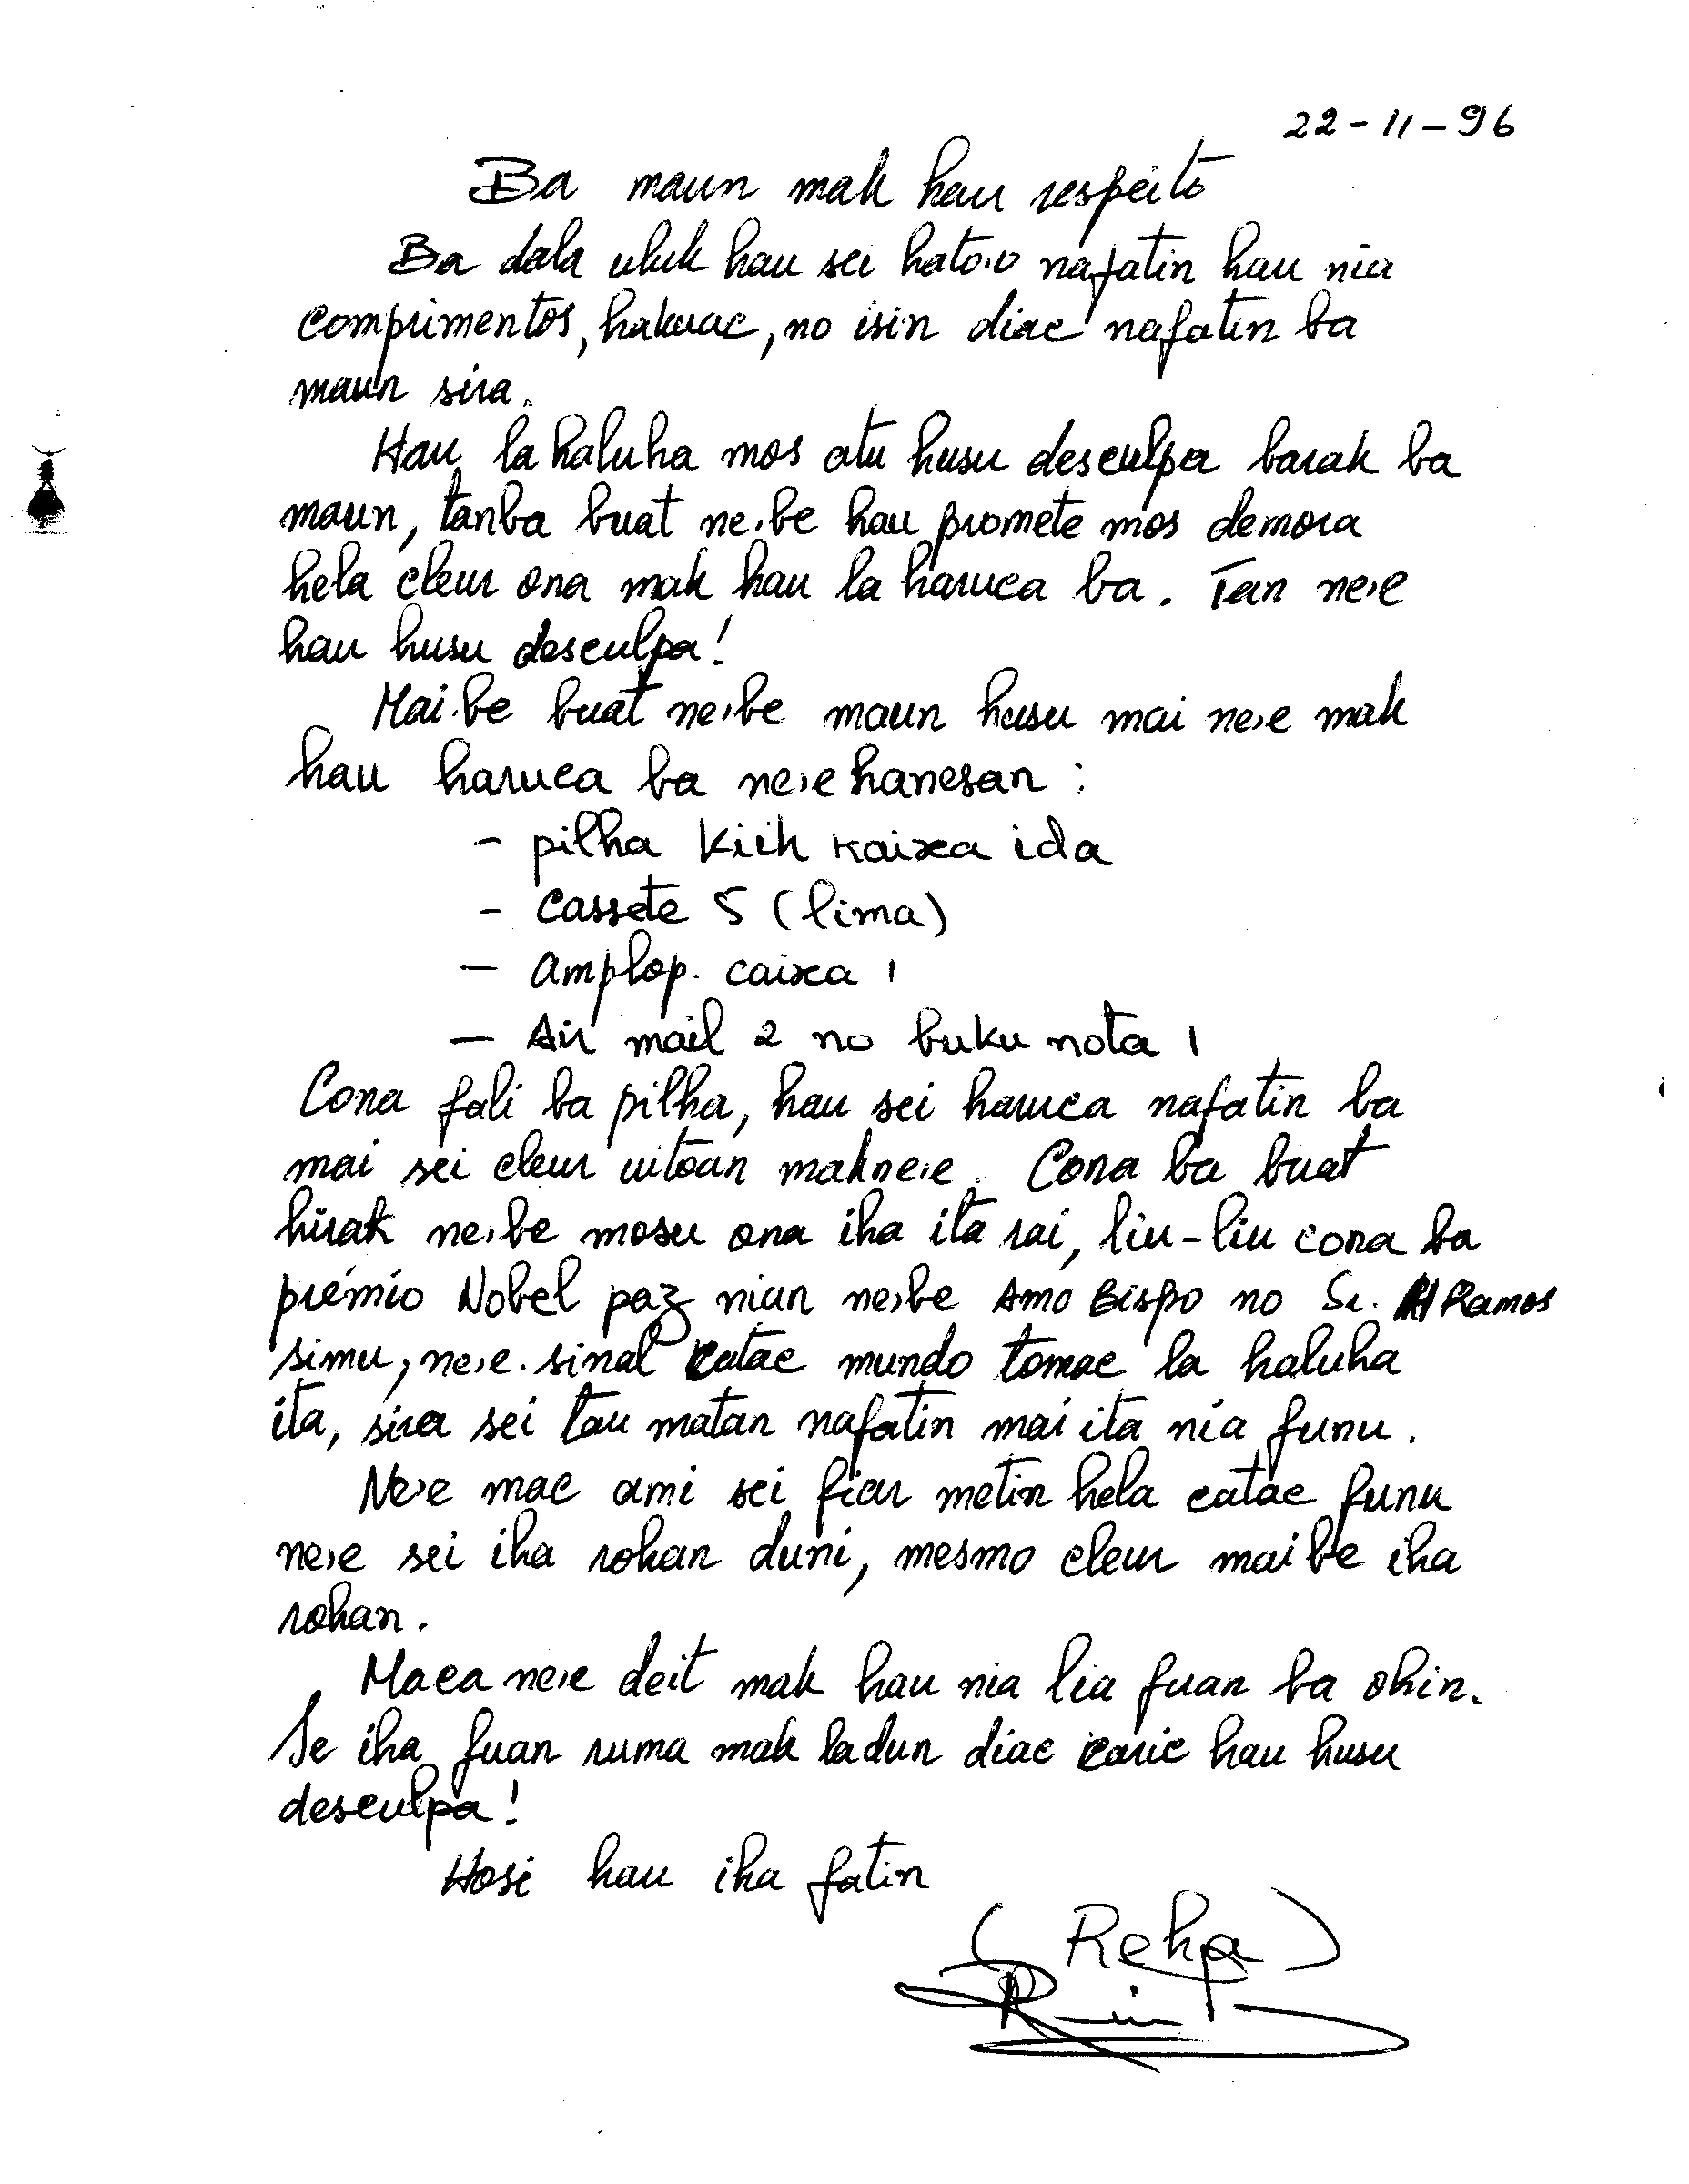 22-11-96
Ba maun mak hau respeito
Ba dala uluk hau sei hato'o nafatin hau nia
comprimentos, hakuac, no isin diac nafatin ba
maun sira.
Hau la haluha mos atu husu desculpa barak ba
maun, tanba buat ne'be hau promete mos demora
hela cleur ona mak hau la haruca ba. Tan ne'e
hau husu desculpa!
Mai.be buat ne'be maun husu mai ne'e mak
hau haruca ba ne'e hanesan :
- pilha kiik kaixa ida
- Cassete 5 (lima)
- Amplop. caixa 1
- Air mail 2 no buku nota 1
Cona fali ba pilha, hau sei haruca nafatin ba
mai sei cleur uitoan mak ne'e. Cona ba buat
hirak ne'be mosu ona iha ita rai, liu-liu cona ba
prémio Nobel paz nian ne'be Amo Bispo no Sr. H Ramos
simu, ne'e. sinal catac mundo tomac la haluha
ita, sira sei tau matan nafatin mai ita nia funu.
Ne'e mac ami sei fiar metin hela catac funu
ne'e sei iha rohan duni, mesmo cleur maibe iha
rohan.
Maca ne'e deit mak hau nia lia fuan ba ohin.
Se iha fuan ruma mak ladun diac caric hau husu
desculpa!
Hosi hau iha fatin
(Reha)